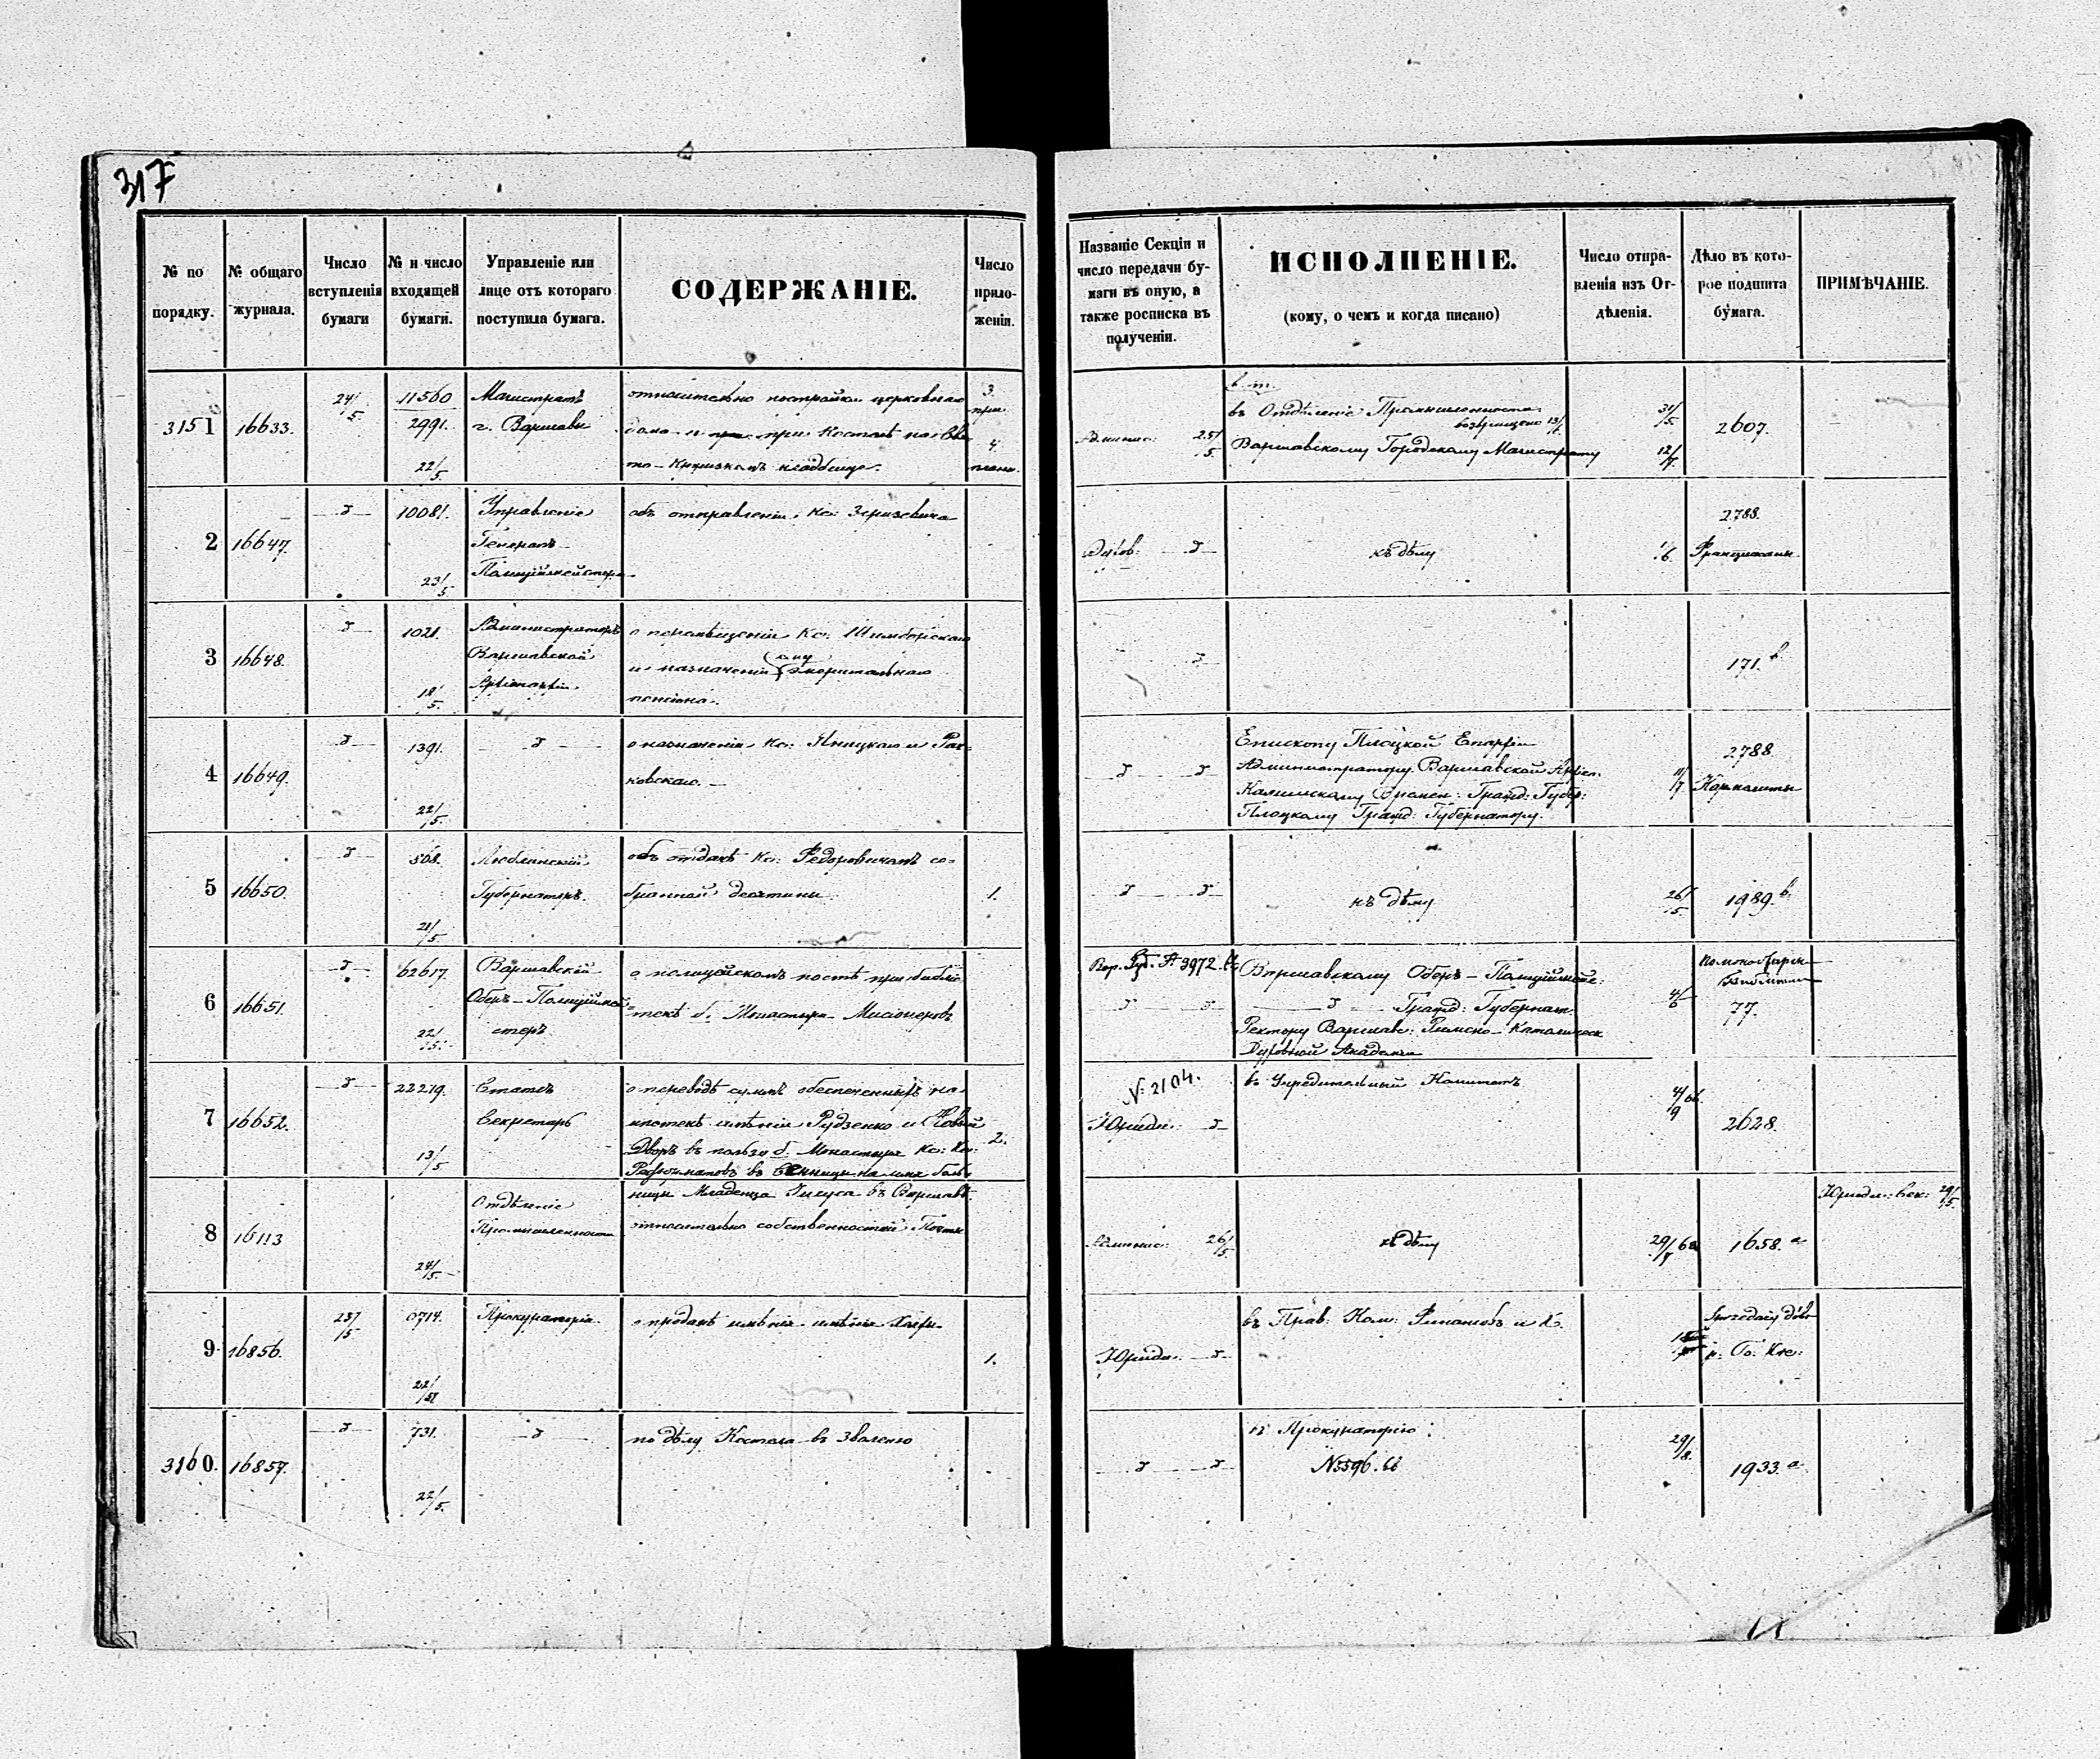 317
№ по порядку.
№ общаго журнала.
Число вступленія бумаги
№ и число входящей бумаги.
Управленіе или лице отъ котораго поступила бумага.
СОДЕРЖАНІЕ.
Число приложеній.
Названіе Секціи и число передачи бумаги въ оную, а также росписка въ полученіи.
ИСПОЛНЕНІЕ.
(кому, о чемъ и когда писано)
Число отправленія изъ Отдѣленія.
Дѣло въ которое подшита бумага.
ПРИМѢЧАНІЕ.
3151 16633. 24/5 11560
2991.
22/5
Магистратъ
г. Варшавы
относительно постройки церковнаго
дома и при Костелѣ на Свен-
то-Крижскомъ кладбище.
3 при
4 плана.
25/5
въ Отдѣленіе Промышленности
возвращено 13/
Варшавскому Городскому Магистрату
31/5
12/7
2607.
2 16647. 10081.
23/5
Управленіе
Генералъ
Полиціймейстера
объ отправленіи Кс:
Духов:
къ дѣлу
1/6
2788.
Францискане
3 16648. 1021.
18/5
Администраторъ
Варшавской
Архіепархіи
о перемѣщеніи Кс:
и назначеніи ему эмеритальнаго
пенсіона.
171. b
4 16649. 1391.
22/5
о назначеніи Кс:
ковскаго.
Епископу Плоцкой Епархіи
Администратору Варшавской Архіеп:
Калишскому Времен: Гражд: Губер:
Плоцкому Гражд: Губернатору.
11/7
2788
5 16650. 508.
21/5
Люблинскій
Губернаторъ.
объ отдачѣ Кс: Федоровичемъ со-
бранной десятины
1.
къ дѣлу
26/5
1989. b.
6 16651. 62617.
22/5
Варшавскій
Оберъ-Полиціймей-
стеръ
о полицейскомъ постѣ при библіо-
текѣ б. Монастыря Мисіонеровъ
Вар. Губ. № 3972.
Варшавскому Оберъ-Полиціймейс:
Гражд: Губернат.
Ректору Варшавс: Римско-Католическ
Духовной Академіи
4/6
77.
7 16652. 22219.
13/5
Статсъ
Секретарь
о переводѣ суммъ обеспеченныхъ на
ипотекѣ имѣній Рудзенко и Новый
Дворъ въ пользу б. Монастыря Кс: Кс:
Реформатовъ въ на имя Боль-
ницы Младенца Іисуса въ Варшавѣ.
2.
№ 2104.
Юриди:
въ Учредительный Комитетъ
4/9 66.
2628.
8 16113
24/5
Отдѣленіе
Промышленности
относительно собственностей
26/5
къ дѣлу
1658. a
Юриди: Сек: 29/5
9 16856. 25/5 0714.
22/5
Прокураторія
о продажѣ имѣнія имѣнія
1.
Юриди:
въ Прав: Ком: Финансовъ и К.
3160. 16857. 731.
22/5
по дѣлу Костела въ
въ Прокураторію
№ 5596. 66
29/8
1933. a